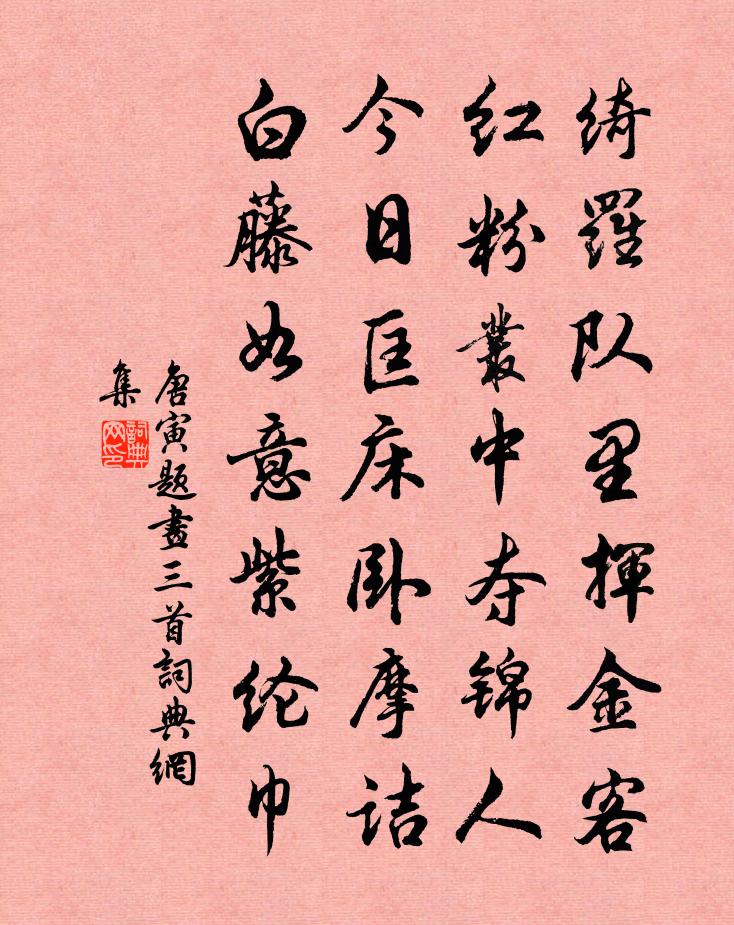 绮羅队里揮金客
红粉叢中夺锦人
今日匡床卧摩诘
白藤如意紫纶巾
唐寅题畫三首詞典網
集
詞典
网印